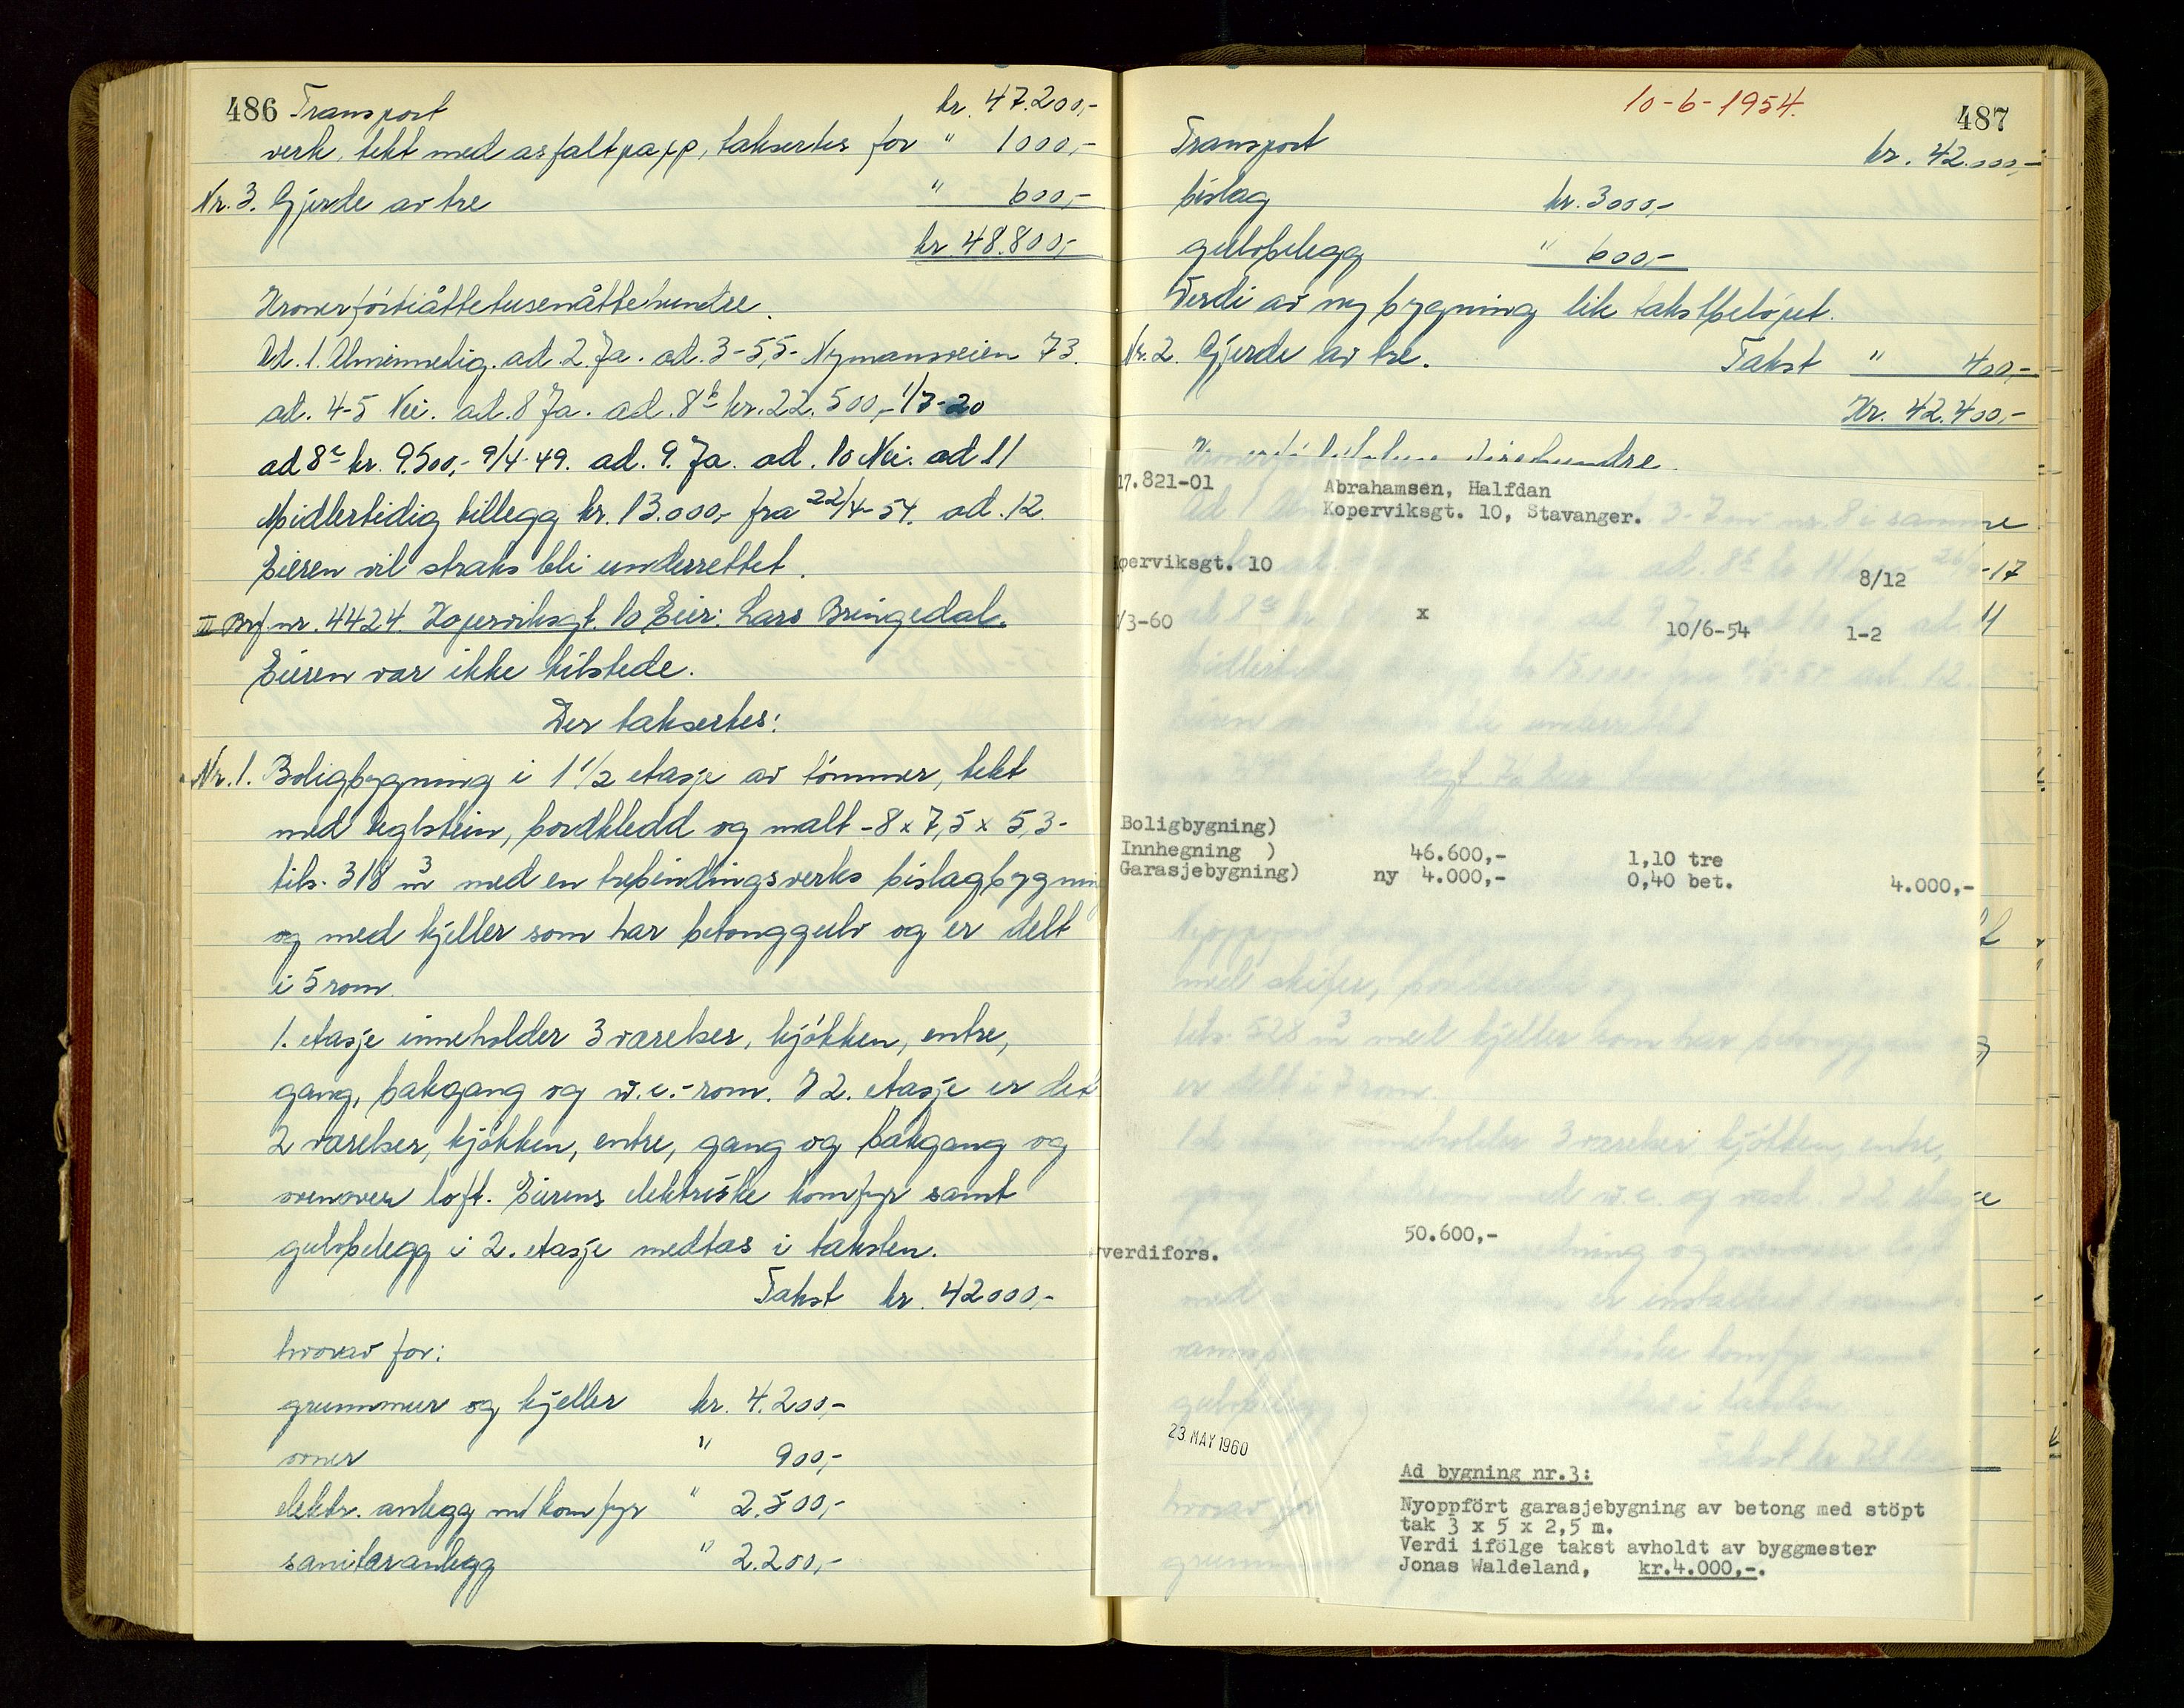 486 Transport kr. 47.200,-
verk, tekt med asfaltpapp, taksertes for " 1000,-
Nr. 3. Gjerde av tre " 600,-
kr. 48.800,-
Kronerförtiåttetusenåttehundre.
Ad. 1. Alminnelig. ad. 2. Ja. ad. 3-5,5- Nymansveien 73.
ad. 4-5 Nei. ad. 8 Ja. ad. 8b kr. 22.500,- 1/7-20
ad 8c kr. 9.500,- 9/4-49. ad. 9. Ja. ad. 10 Nei. ad 11
Midlertidig tillegg kr. 13.000,- fra 22/4-54. ad. 12.
Eieren vil straks bli underrettet.
III Brf.nr. 4424. Koperviksgt. 10 Eier: Lars Bringedal.
Eieren var ikke tilstede.
Der taksertes:
Nr. 1. Boligbygning i 1 1/2 etasje av tömmer, tekt
med teglstein, bordkledd og malt - 8 x 7,5 x 5,3 -
tils. 318 m3 med en trebindingsverks bislagbygning
og med kjeller som har betonggulv og er delt
i 5 rom.
1. etasje inneholder 3 værelser, kjökken, entre,
gang, bakgang og w.c.-rom. I 2. etasje er det
2 værelser, kjökken, entre, gang og bakgang og
ovenover loft. Eierens elektriske komfyr samt
gulvbelegg i 2. etasje medtas i taksten.
Takst kr. 42000,-
hvorav for:
grunnmur og kjeller kr. 4.200,-
ovner " 900,-
elektr. anlegg m/komfyr " 2.500,-
sanitæranlegg " 2.200,-
10-6-1954. 487
Transport kr. 42.000,-
bislag kr. 3000,-
gulvbelegg " 600,-
Verdi av ny bygning lik takstbelöpet.
Nr. 2. Gjerde av tre. Takst " 400,-
Kr. 42.400,-
17.821-01 Abrahamsen, Halfdan
Koperviksgt. 10, Stavanger.
operviksgt. 10 8/12 -17
/3-60 x 10/6-54 1-2 11
Boligbygning)
Innhegning ) 46.600,- 1,10 tre
Garasjebygning) ny 4.000,- 0,40 bet. 4.000,-
med skifer,
tils. 528 m3 med kjeller som har
er delt i 7 rom.
inneholder 3 værelser, kjökken, entre,
50.600,-
verdifors.
23 MAY 1960
Ad bygning nr.3:
Nyoppfört garasjebygning av betong med stöpt
tak 3 x 5 x 2,5 m.
Verdi ifölge takst avholdt av byggmester
Jonas Waldeland, kr.4.000,-.